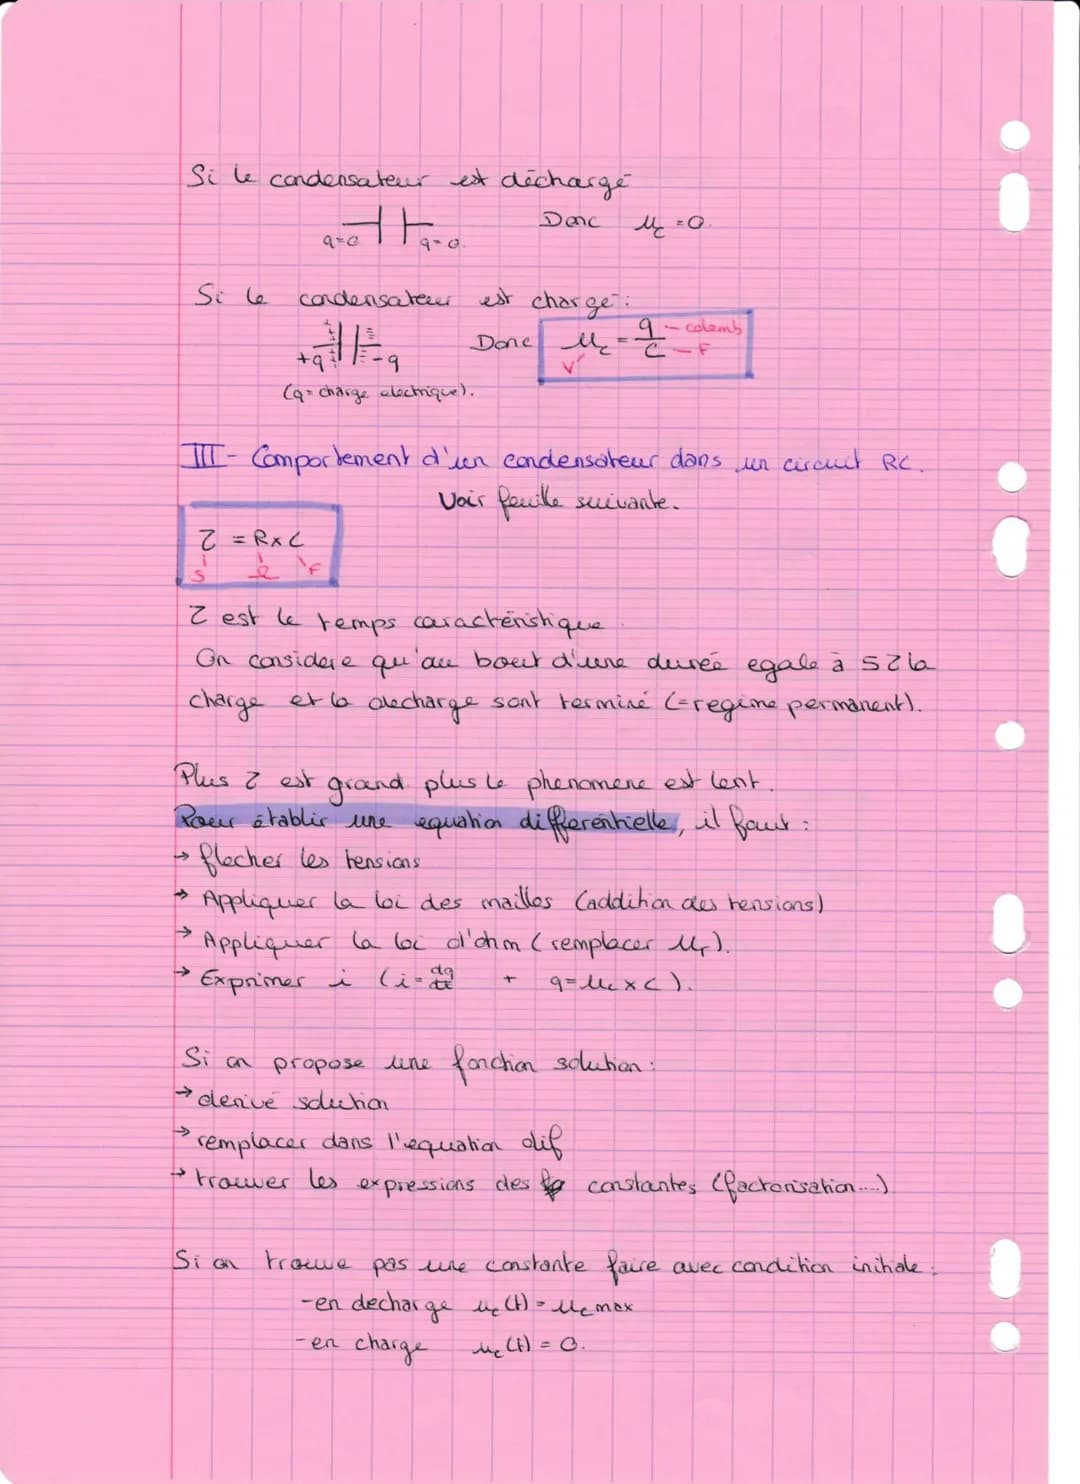 Si le condensateur est déchargé
q=0 q=0. Donc uc =0.
Si le condensateur est chargé :
+q -q Donc uc = q/C - colomb - F V
(q= charge electrique).
III - Comportement d'un condensateur dans un circuit RC.
Voir feuille suivante.
τ = R x C
s Ω F
τ est le temps caractéristique.
On considere qu'au bout d'une durée egale à 5τ la
charge et la decharge sont terminé (=regime permanent).
Plus τ est grand plus le phenomene est lent.
Pour établir une equation differentielle, il faut :
→ flecher les tensions
→ Appliquer la loi des mailles (addition des tensions)
→ Appliquer la loi d'ohm (remplacer Ur).
→ Exprimer i (i= dq/dt + q=uc x C).
Si on propose une fonction solution :
→ derivé solution
→ remplacer dans l'equation dif
→ trouver les expressions des constantes (factorisation....)
Si on trouve pas une constante faire avec condition initiale :
-en decharge uc(t) = uc max
-en charge uc(t) = 0.